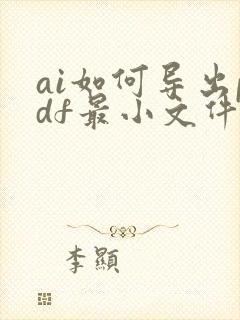 ai如何导出p
df最小文件
李顯